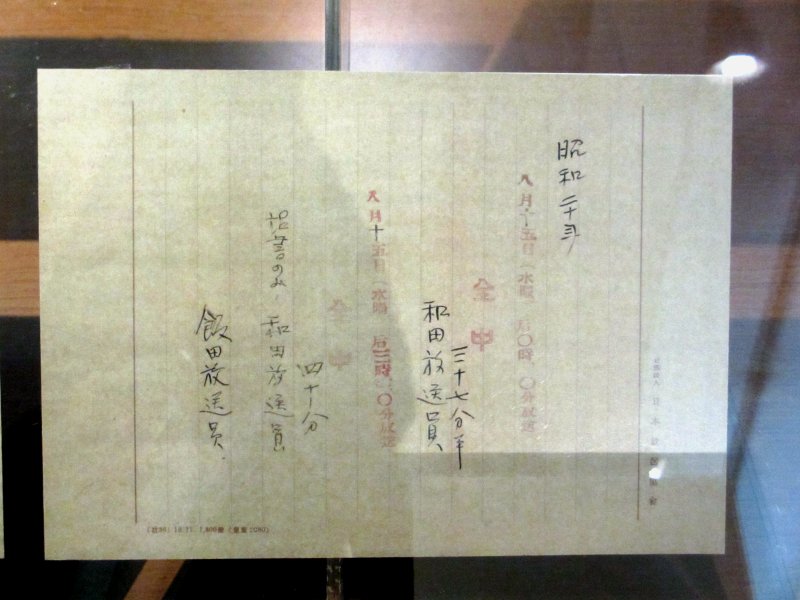 昭和二十年
八月十五日(水曜) 后〇時、〇分放送
全中
三十七分半
和田放送員
八月十五日(水曜) 后三時、〇分放送
全中
四十分
詔書のみ、和田放送員
飯田放送員
社団法人 日本放送協会